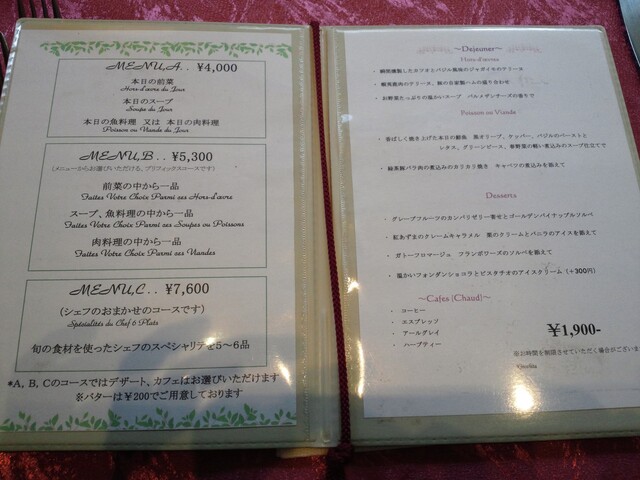 MENU,A.. ¥4,000
本日の前菜
Hors-d'œvre du Jour
本日のスープ
Soupe du Jour
本日の魚料理 又は 本日の肉料理
Poisson ou Viande du Jour
MENU,B.. ¥5,300
(メニューからお選びいただける、プリフィックスコースです)
前菜の中から一品
Faites Votre Choix Parmi ces Hors-d'œvre
スープ、魚料理の中から一品
Faites Votre Choix Parmi ces Soupes ou Poissons
肉料理の中から一品
Faites Votre Choix Parmi ces Viandes
MENU,C.. ¥7,600
(シェフのおまかせのコースです)
Spécialités du Chef 6 Plats
旬の食材を使ったシェフのスペシャリテを5~6品
*A, B, Cのコースではデザート、カフェはお選びいただけます
※バターは¥200でご用意しております
~Dejeuner~
Hors d'œvres
・ 瞬間燻製したカツオとバジル風味のジャガイモのテリーヌ
・ 豚肉のテリーヌ、自家製ハムの盛り合わせ
・ お野菜たっぷりの温かいスープ パルメザンチーズの香りで
Poisson ou Viande
・ 香ばしく焼き上げた本日の鮮魚 黒オリーブ、ケッパー、バジルのペーストと
レタス、グリーンピース、春野菜の軽い煮込みのスープ仕立てで
・ 豚バラ肉の煮込みのカリカリ焼き キャベツの煮込みを添えて
Desserts
・ グレープフルーツのカンパリゼリー寄せとゴールデンパイナップルソルベ
・ 紅あずまのクレームキャラメル 栗のクリームとバニラのアイスを添えて
・ ガトーフロマージュ フランボワーズのソルベを添えて
・ 温かいフォンダンショコラとピスタチオのアイスクリーム (+300円)
~Cafes [Chaud]~
・ コーヒー
・ エスプレッソ
・ アールグレイ
・ ハーブティー
¥1,900-
※お時間を制限させていただく場合がございま